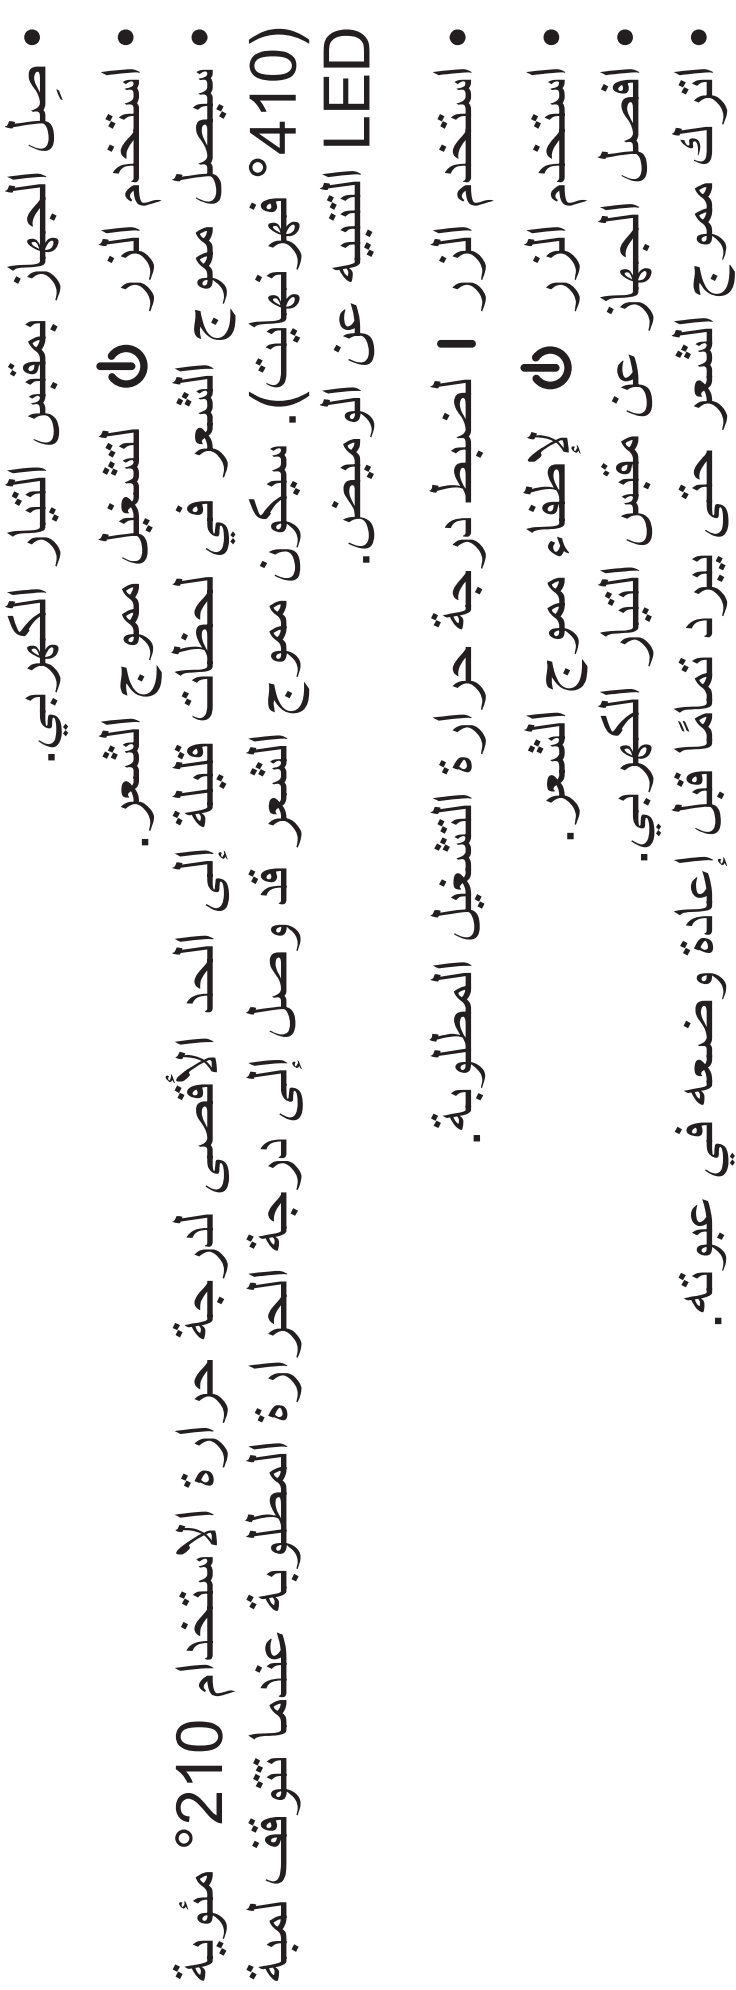 • صِل الجهاز بمقبس التيار الكهربي.
• استخدم الزر ⏻ لتشغيل مموج الشعر.
• سيصل مموج الشعر في لحظات قليلة إلى الحد الأقصى لدرجة حرارة الاستخدام 210° مئوية
(410° فهرنهايت). سيكون مموج الشعر قد وصل إلى درجة الحرارة المطلوبة عندما تتوقف لمبة
LED التنبيه عن الوميض.
• استخدم الزر I لضبط درجة حرارة التشغيل المطلوبة.
• استخدم الزر ⏻ لإطفاء مموج الشعر.
• افصل الجهاز عن مقبس التيار الكهربي.
• اترك مموج الشعر حتى يبرد تمامًا قبل إعادة وضعه في عبوته.